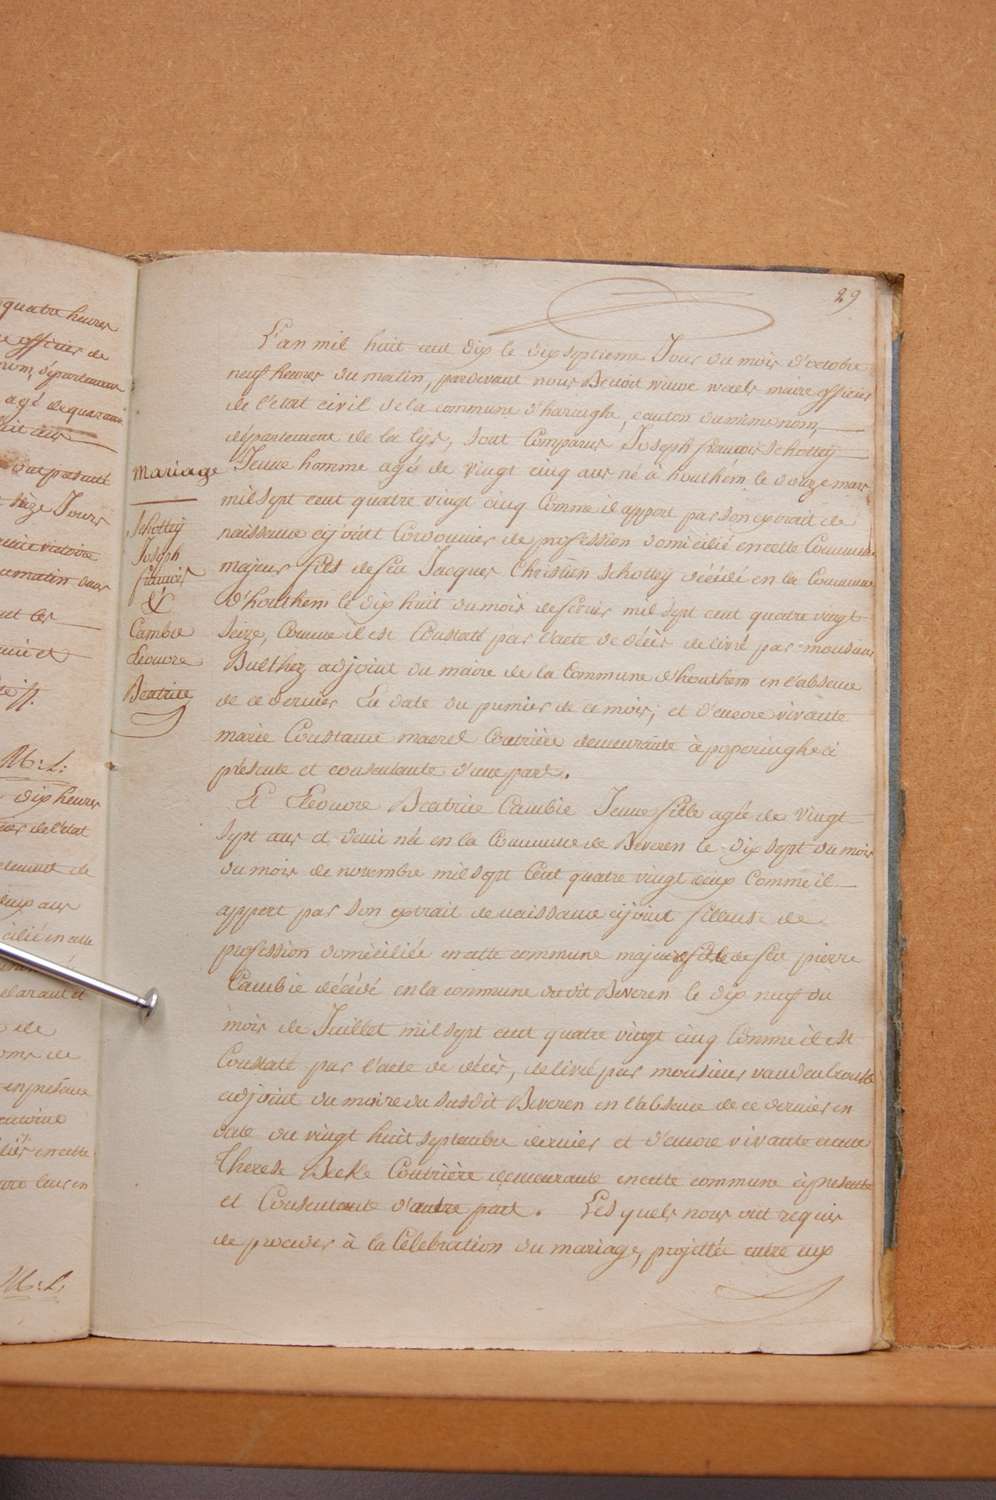 29
L'an mil huit cent dix le dix septieme Jour du mois d'octobre
neuf heures du matin, pardevant nous Benoit Wuwe Waels maire officier
de l'etat civil de la commune d'haringhe, canton du même nom,
departement de la lys, sont Comparus Joseph francois Schottey
Jeune homme agée de vingt cinq ans né à houthem le douze mars
mil sept cent quatre vingt cinq Comme il appert par son extrait de
naissance cijoint Cordonnier de profession domicilié en cette Commune
majeur fils de feu Jacques Christien Schottey décédé en la Commune
d'houthem le dix huit du mois de fevrier mil sept cent quatre vingt
seize, Comme il est Constaté par l'acte de décès delivré par monsieur
Bulthez adjoint du maire de la Commune d'houthem en l'absence
de ce dernier En date du premier de ce mois; et d'encore vivante
marie Constance maerel Coutrière demeurante à poperinghe ci
présente et consentante d'une part.
Et Eleonore Beatrice Cambie Jeune fille agée de vingt
sept ans et demi née en la Commune de Beveren le dix sept du mois
du mois de novembre mil sept Cent quatre vingt deux Comme il
appert par son extrait de naissance cijoint fileuse de
profession domiciliée en cette commune majeure fille de feu pierre
Cambie décédé en la commune du dit Beveren le dix neuf du
mois de Juillet mil sept cent quatre vingt cinq Comme il est
Constaté par l'acte de décès, delivré par monsieur
adjoint du maire du susdit Beveren en l'absence de ce dernier en
date du vingt huit septembre dernier et d'encore vivante
Therese Beke Coutrière demeurante en cette commune ci presente
et Consentante d'autre part. Lesquels nous ont requis
de proceder à la Célebration du mariage, projettée entre eux
mariage
Schottey
Joseph
francois
&
Cambie
Eleonore
Beatrice
quatre heures
officier de
nom, département
agé de quarante
dix heures
de l'état
M: L:
M: L: